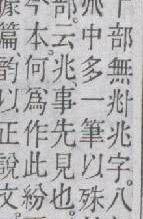 部無𠧞兆字。八
中多一筆以殊
部。云兆事先見也。
今本何爲作此紛
篇韵以正說文。